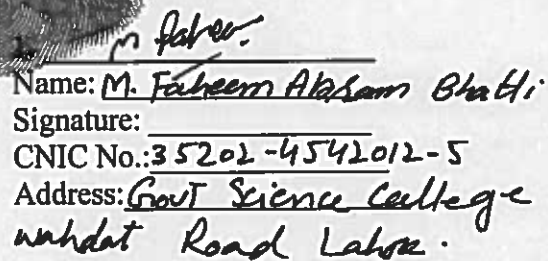 1.
Name: M. Faheem Bhatti
Signature:
CNIC No.:35202-4542012-5
Address: Govt Science College
wahdat Road Lahore.